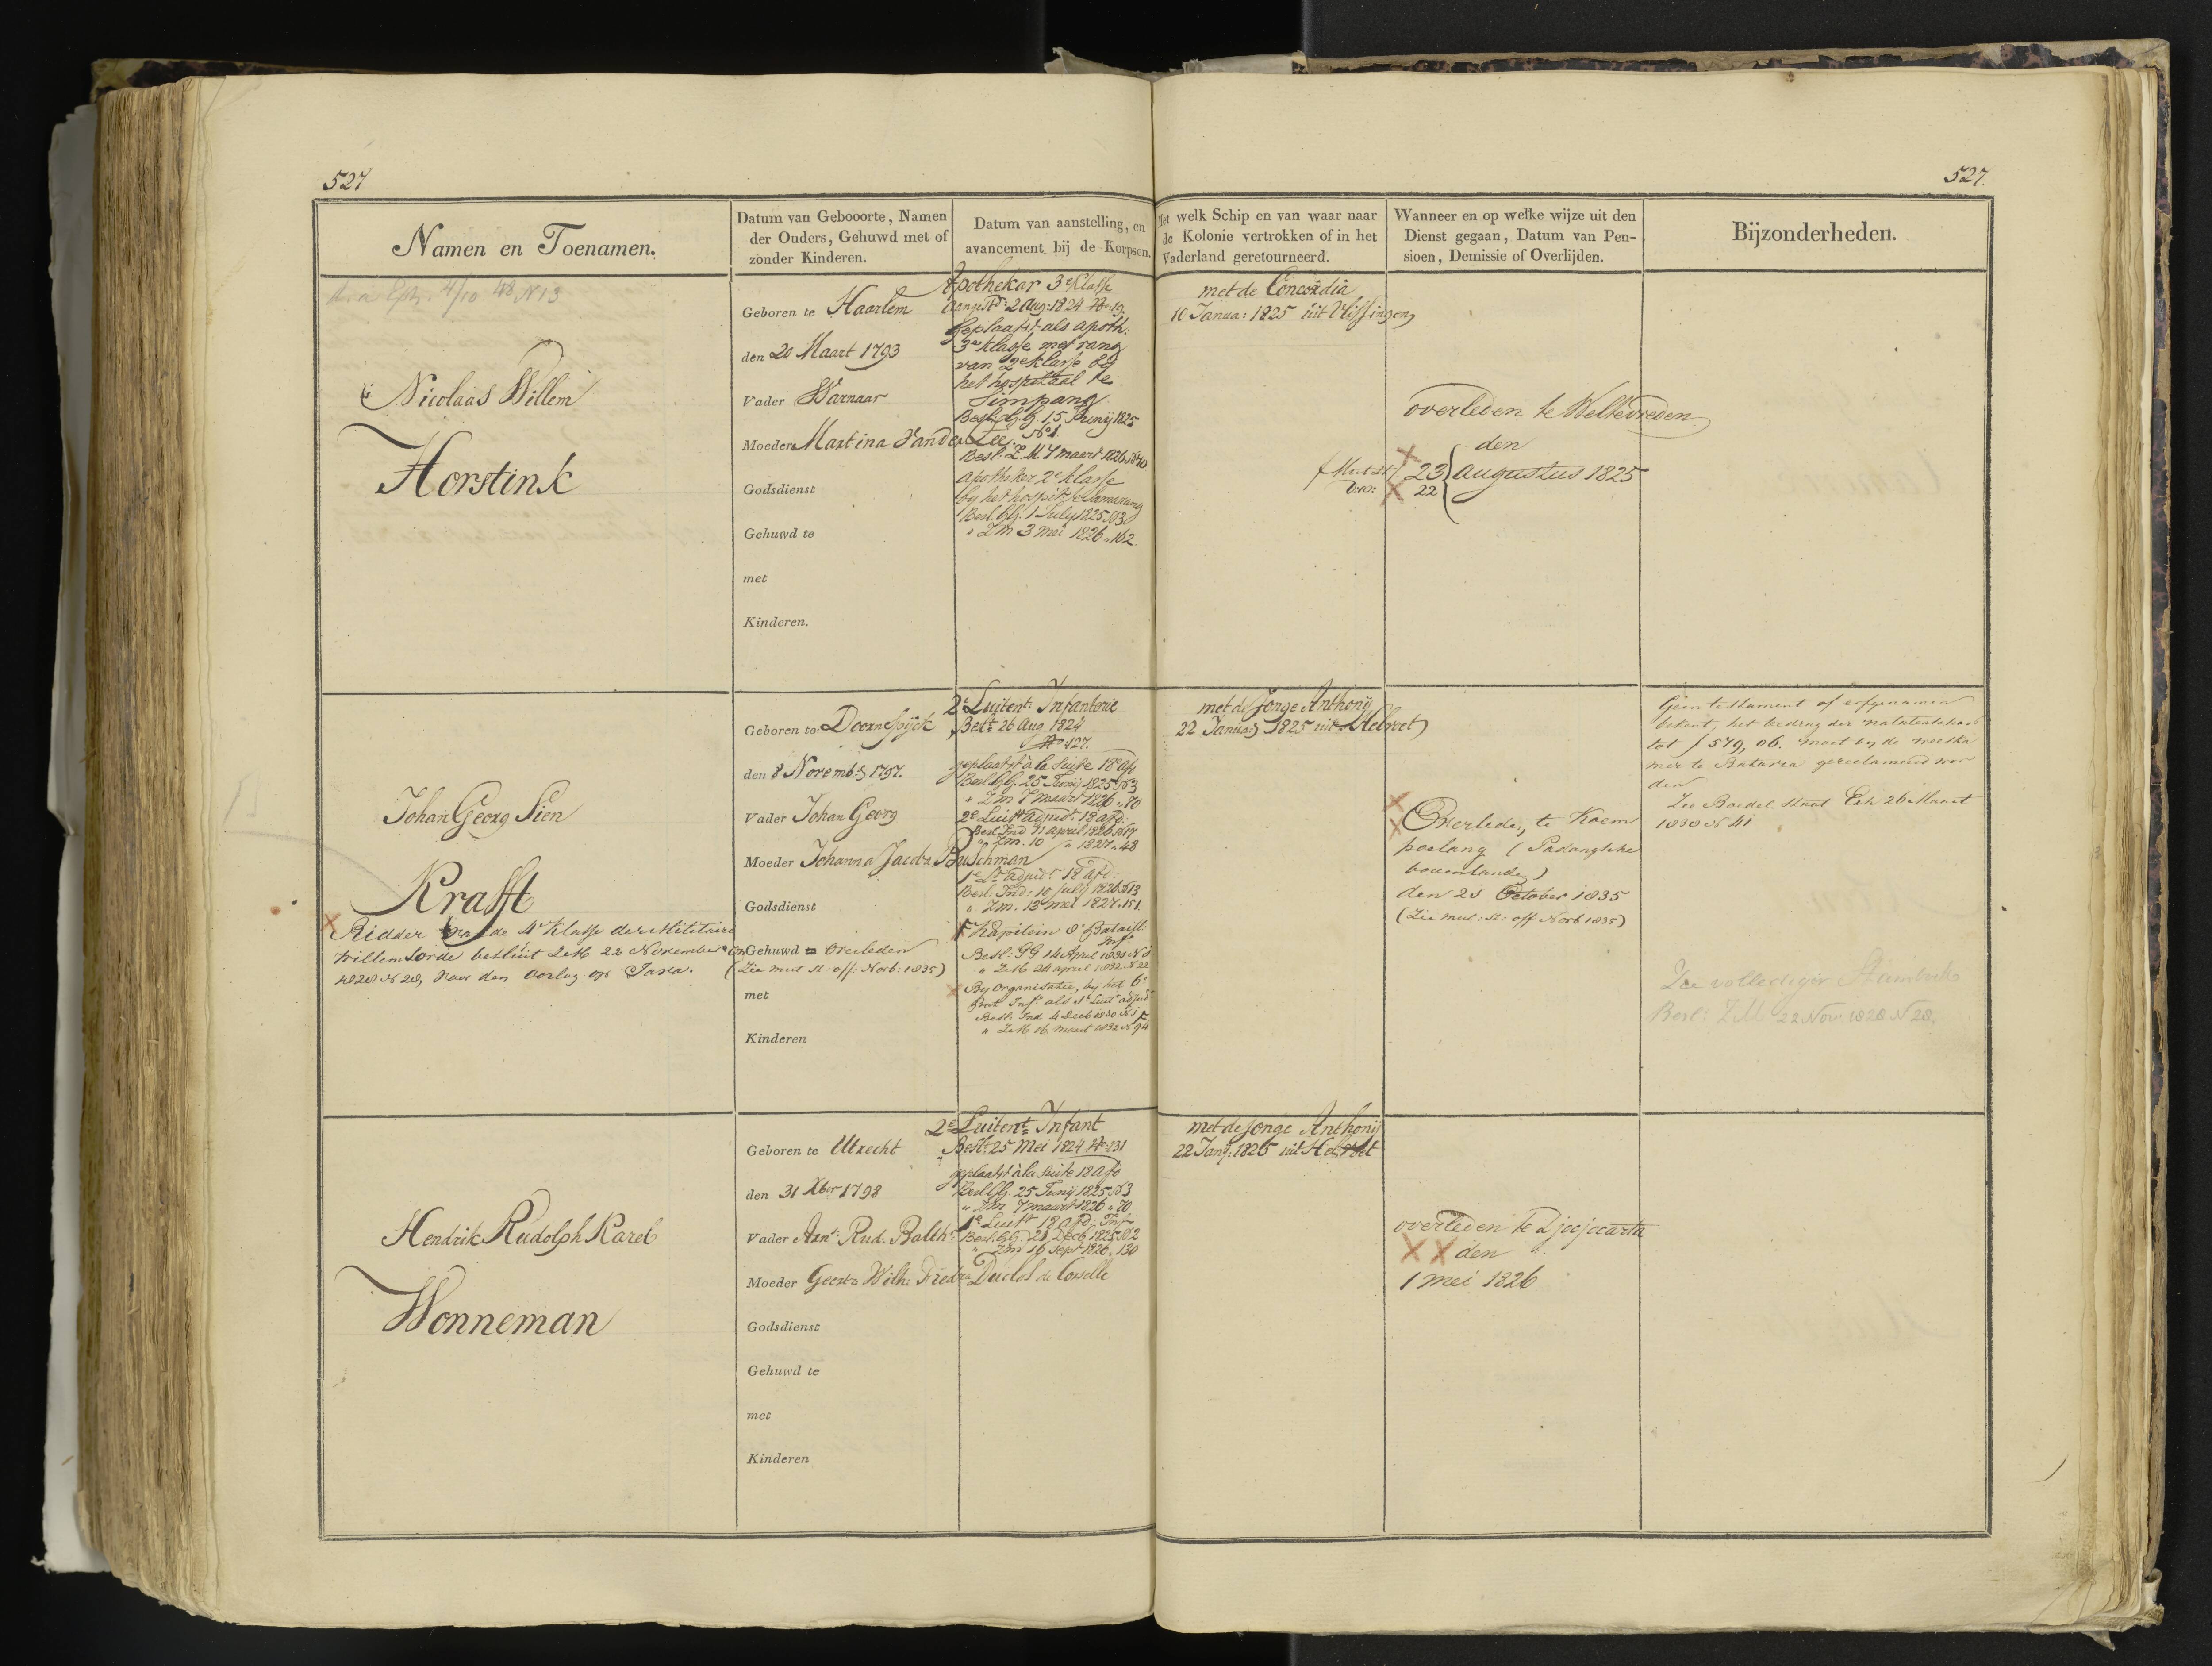 527
527.
Namen en Toenamen.
Datum van Gebooorte, Namen
der Ouders, Gehuwd met of
zonder Kinderen.
Datum van aanstelling, en
avancement bij de Korpsen.
Met welk Schip en van waar naar
de Kolonie vertrokken of in het
Vaderland geretourneerd.
Wanneer en op welke wijze uit den
Dienst gegaan, Datum van Pen-
sioen, Demissie of Overlijden.
Bijzonderheden.
4/10 48 N 13
Nicolaas Willem
Horstink
Geboren te Haarlem
den 20 Maart 1793
Vader Warnaar
Moeder Martina Van der Lee
Godsdienst
Gehuwd te
met
Kinderen.
Apothekar 3e Klasse
aangestd: 2 Aug: 1824 No 19.
Geplaatst als apoth:
3e klasse met rang
van 2e klasse by
het hospitaal te
Simpang
Besl. G.G. 15 Junij 1825
No 1.
Besl: Z.M. 7 maart 1826 No 70
Apotheker 2e klasse
by het hospit: te Samarang
Besl. GG. 1 July 1825 No 3
" ZM 3 mei 1826 " 162.
met de Concordia
10 Janua: 1825 uit Vlissingen
overleden te Weltevreden
den
23 augustus 1825
22
Johan Georg Sien
Krafft
Ridder van de 4e Klasse der Militaire
Willemsorde besluit ZM 22 November
1828 N 28, voor den Oorlog op Java.
Geboren te Doornspijck
den 8 Novemb: 1797.
Vader Johan Georg
Moeder Johanna Jacoba Buschman
Godsdienst
Gehuwd = Overleden
(Zie mut st: off: Norb: 1835)
met
Kinderen
2e Luitent: Infanterie
Beslt 26 Aug 1824
No 127.
geplaatst à la Suite 18e afd
Besl GG. 25 Junij 1825 No 3
" ZM 7 maart 1826 " 70
2e Luitt adjudt 18 afd:
Besl Ind 11 april 1826 No 17
" ZM. 10 " 1827 " 48
1e Lt adjudt 18 afd:
Besl: Ind: 10 July 1826 No 13
" ZM. 13 mei 1827 " 151
Kapitein 8e Bataill
Inf
Besl: GG 14 April 1831 N 8
" ZM 24 april 1832 N 22
By Organisatie, by het 6e
Bat Inf: als 1e Luit adjud
Besl: Ind 4 Decb 1830 N 1
" ZM 16 maart 1832 N 94
met de Jonge Anthonij
22 Januarij 1825 uit Helvoet
Overleden te Koem
poelang (Padangsche
bovenlanden)
den 28 October 1835
(Zie mut: st: off Norb 1835)
Geen testament of erfgenamen
bekent, het bedrag der nalatenschap
tot ƒ 579,06. moet by de weeska
mer te Batavia gereclameerd wor
den
Zie Boedel Staat Exh 26 Maart
1838 N 41
Zie vollediger Stamboek
Besl: ZM 22 Nov: 1828 N 28.
Hendrik Rudolph Karel
Wonneman
Geboren te Utrecht
den 31 Xber 1798
Vader Arn: Rud: Balth:
Moeder Geertr: Wilh: Friedr: Duclos de Corselle
Godsdienst
Gehuwd te
met
Kinderen
2e Luitent: Infant
Beslt 25 Mei 1824 No 131
geplaatst à la Suite 18 afd
Besl GG. 25 Junij 1825 No 3
" ZM 7 maart 1826 " 70
1e Luitt 19 afd: Inf
Besl. GG. 28 Decb 1825 No 2
" ZM 16 Sept 1826 " 130
met de Jonge Anthonij
22 Janij: 1825 uit Helvoet
overleden te Djocjocarta
den
1 mei 1826